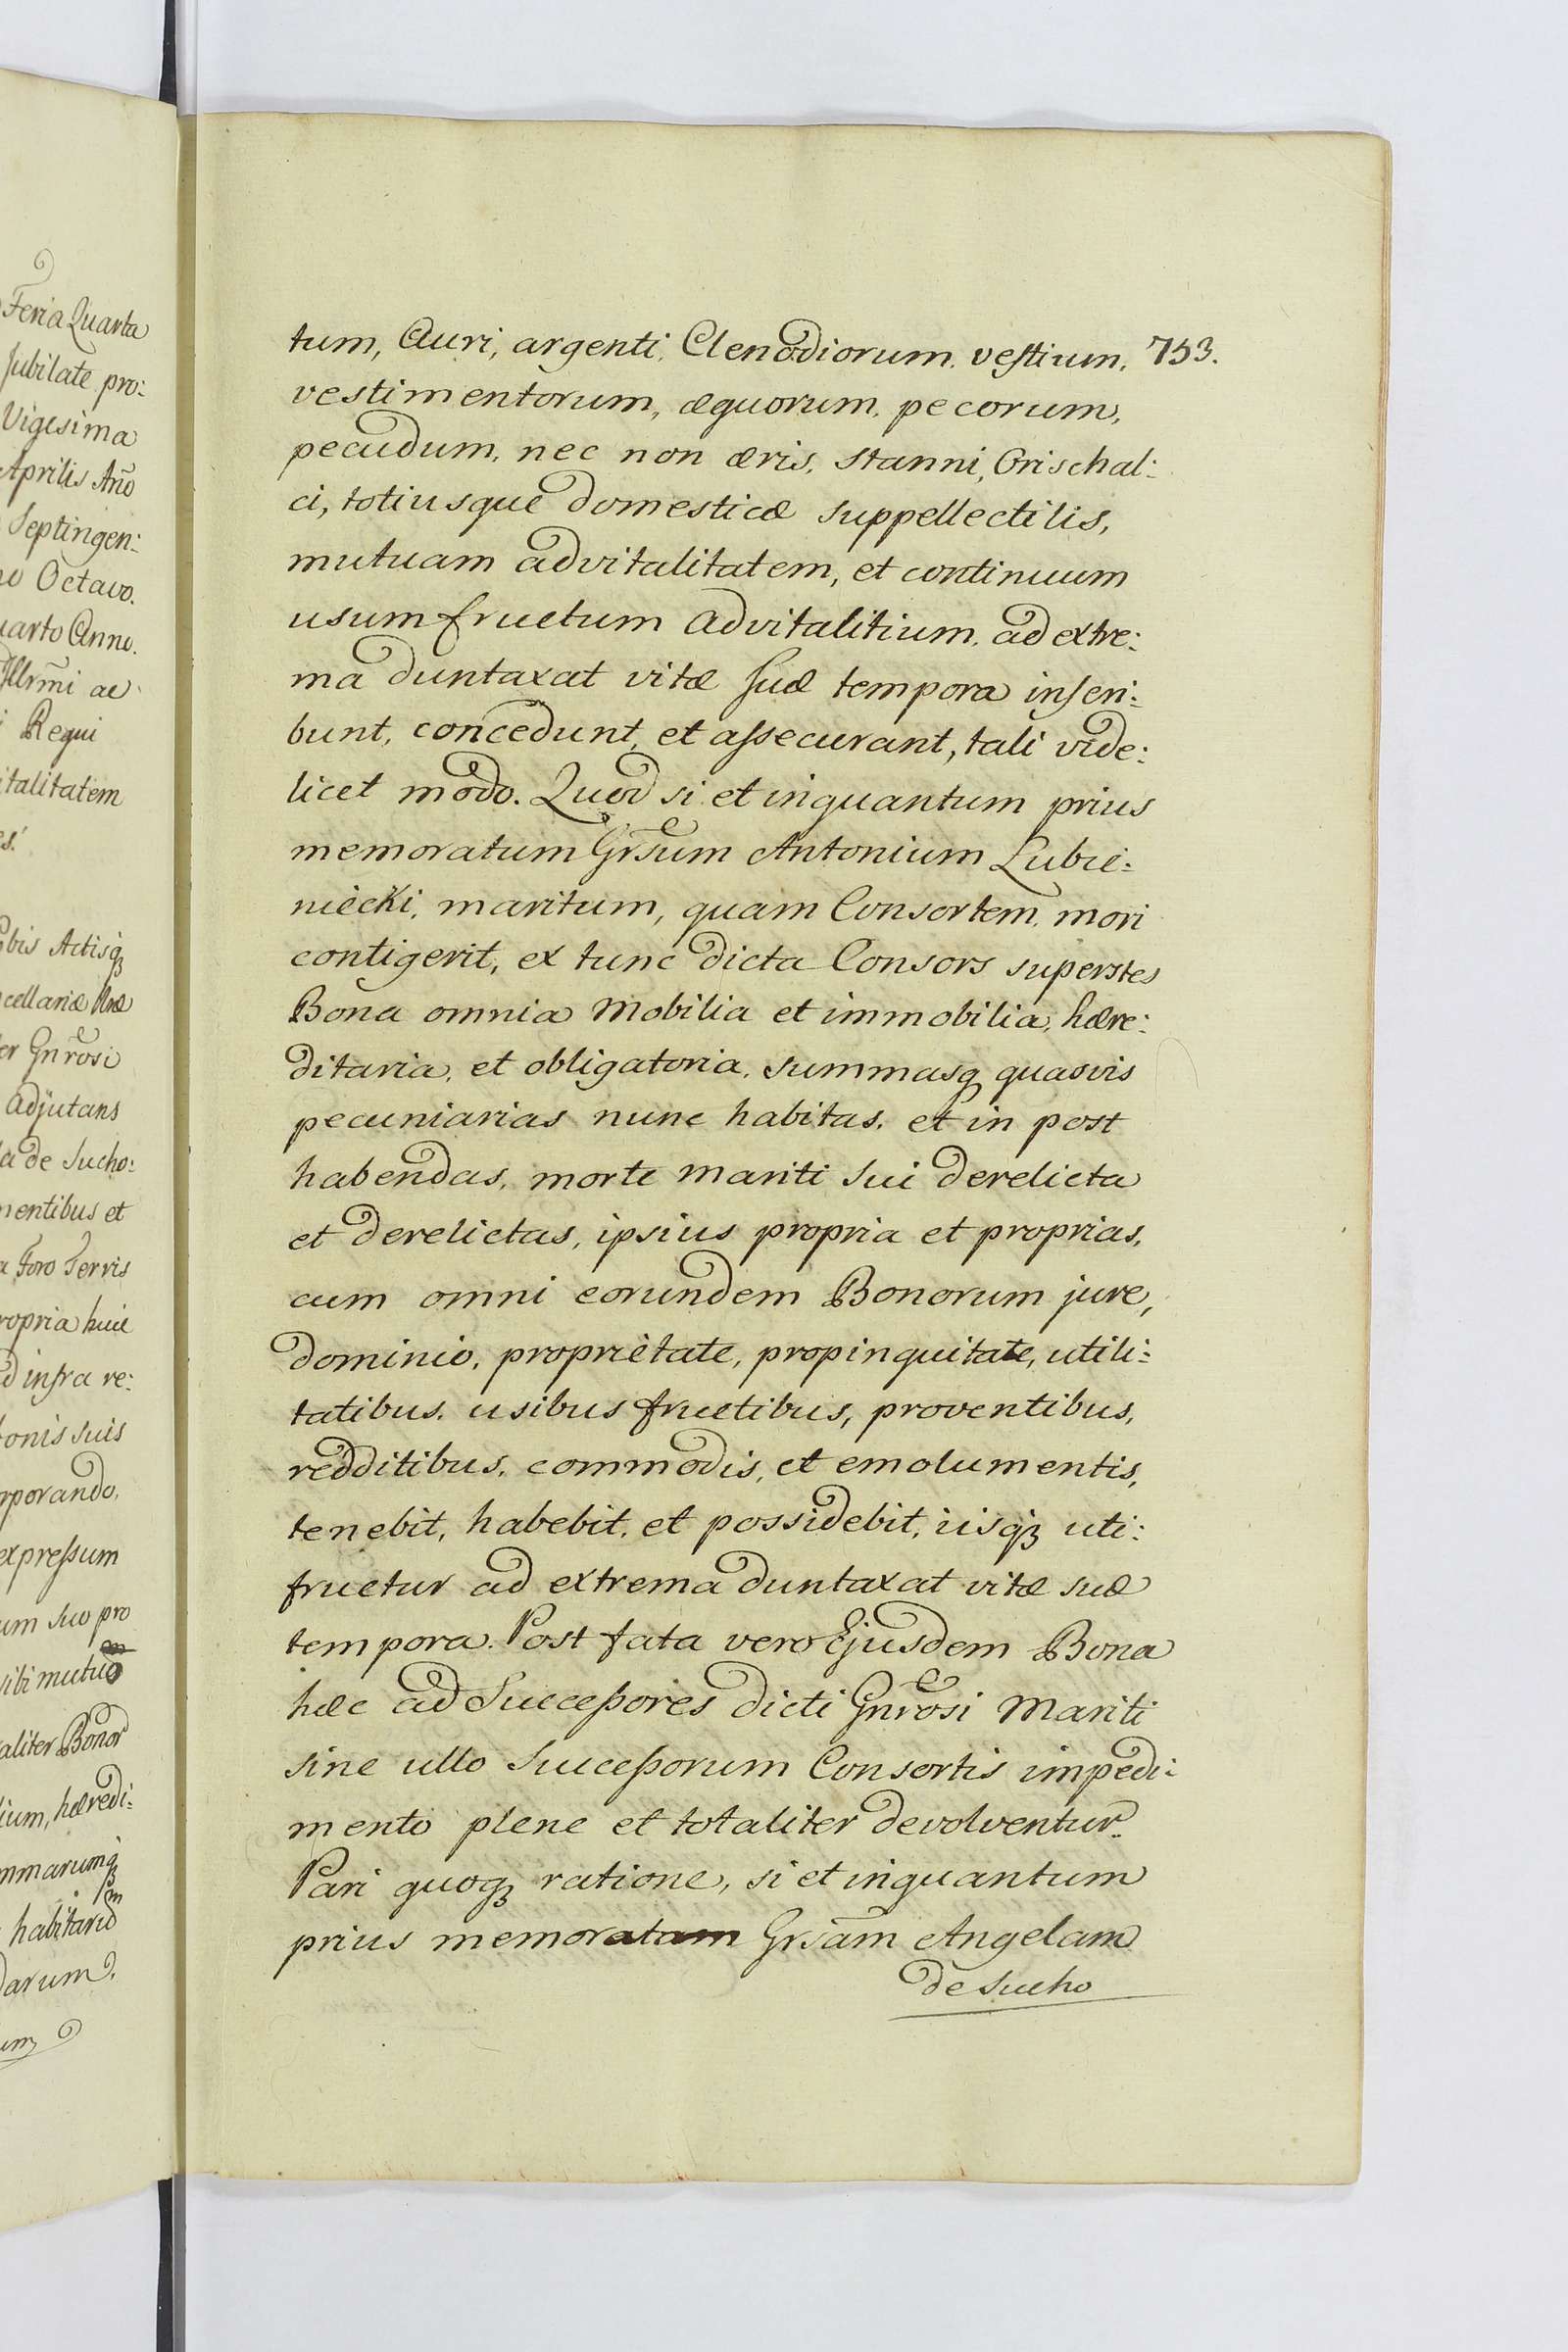 Feria Quarta
Jubilate pro:
Vigesima
Aprilis Añõ
Septingen:
Octavo.
Anno.
Illrm̃i ac
Regni
italitatem
es.
Actisqꝫ
cellariæ
Gnr̃osi
Adjutans
de Sucho:
mentibus et
Foro Terris
ropria huic
infra re:
onis suis
rporando,
expreſsum
um suo pro
sibi mutuo
aliter Bonor
lium, hæredi:
mmarumqꝫ
habitaru
darum,
um
tum, Auri, argenti, Clenodiorum, vestium, 753.
vestimentorum, æquorum, pecorum,
pecudum, nec non æris, stanni, Orischal:
ci, totiusque domesticæ suppellectilis,
mutuam advitalitatem, et continuum
usumfructum advitalitium, ad extre:
ma duntaxat vitæ suæ tempora inscri:
bunt, concedunt, et aſsecurant, tali vide:
licet modo. Quod si et inquantum prius
memoratum Gr̃sum Antonium Lubie:
niecki, maritum, quam Consortem, mori
contigerit, ex tunc dicta Consors superstes
Bona omnia mobilia et immobilia, hære:
ditaria, et obligatoria, summasqꝫ quasvis
pecuniarias nunc habitas, et in post
habendas, morte mariti sui derelicta
et derelictas, ipsius propria et proprias,
cum omni eorundem Bonorum jure,
dominio, proprietate, propinquitate, utili:
tatibus, usibus fructibus, proventibus,
redditibus, commodis, et emolumentis,
tenebit, habebit, et possidebit, iisqꝫ uti:
fructur ad extrema duntaxat vitæ suæ
tempora. Post fata vero Ejusdem Bona
hæc ad Succeſsores dicti Gnr̃osi Mariti
sine ullo Succeſsorum Consortis impedi:
mento plene et totaliter devolventur.
Pari quoqꝫ ratione, si et inquantum
prius memoratam Gr̃sam Angelam
de Sucho